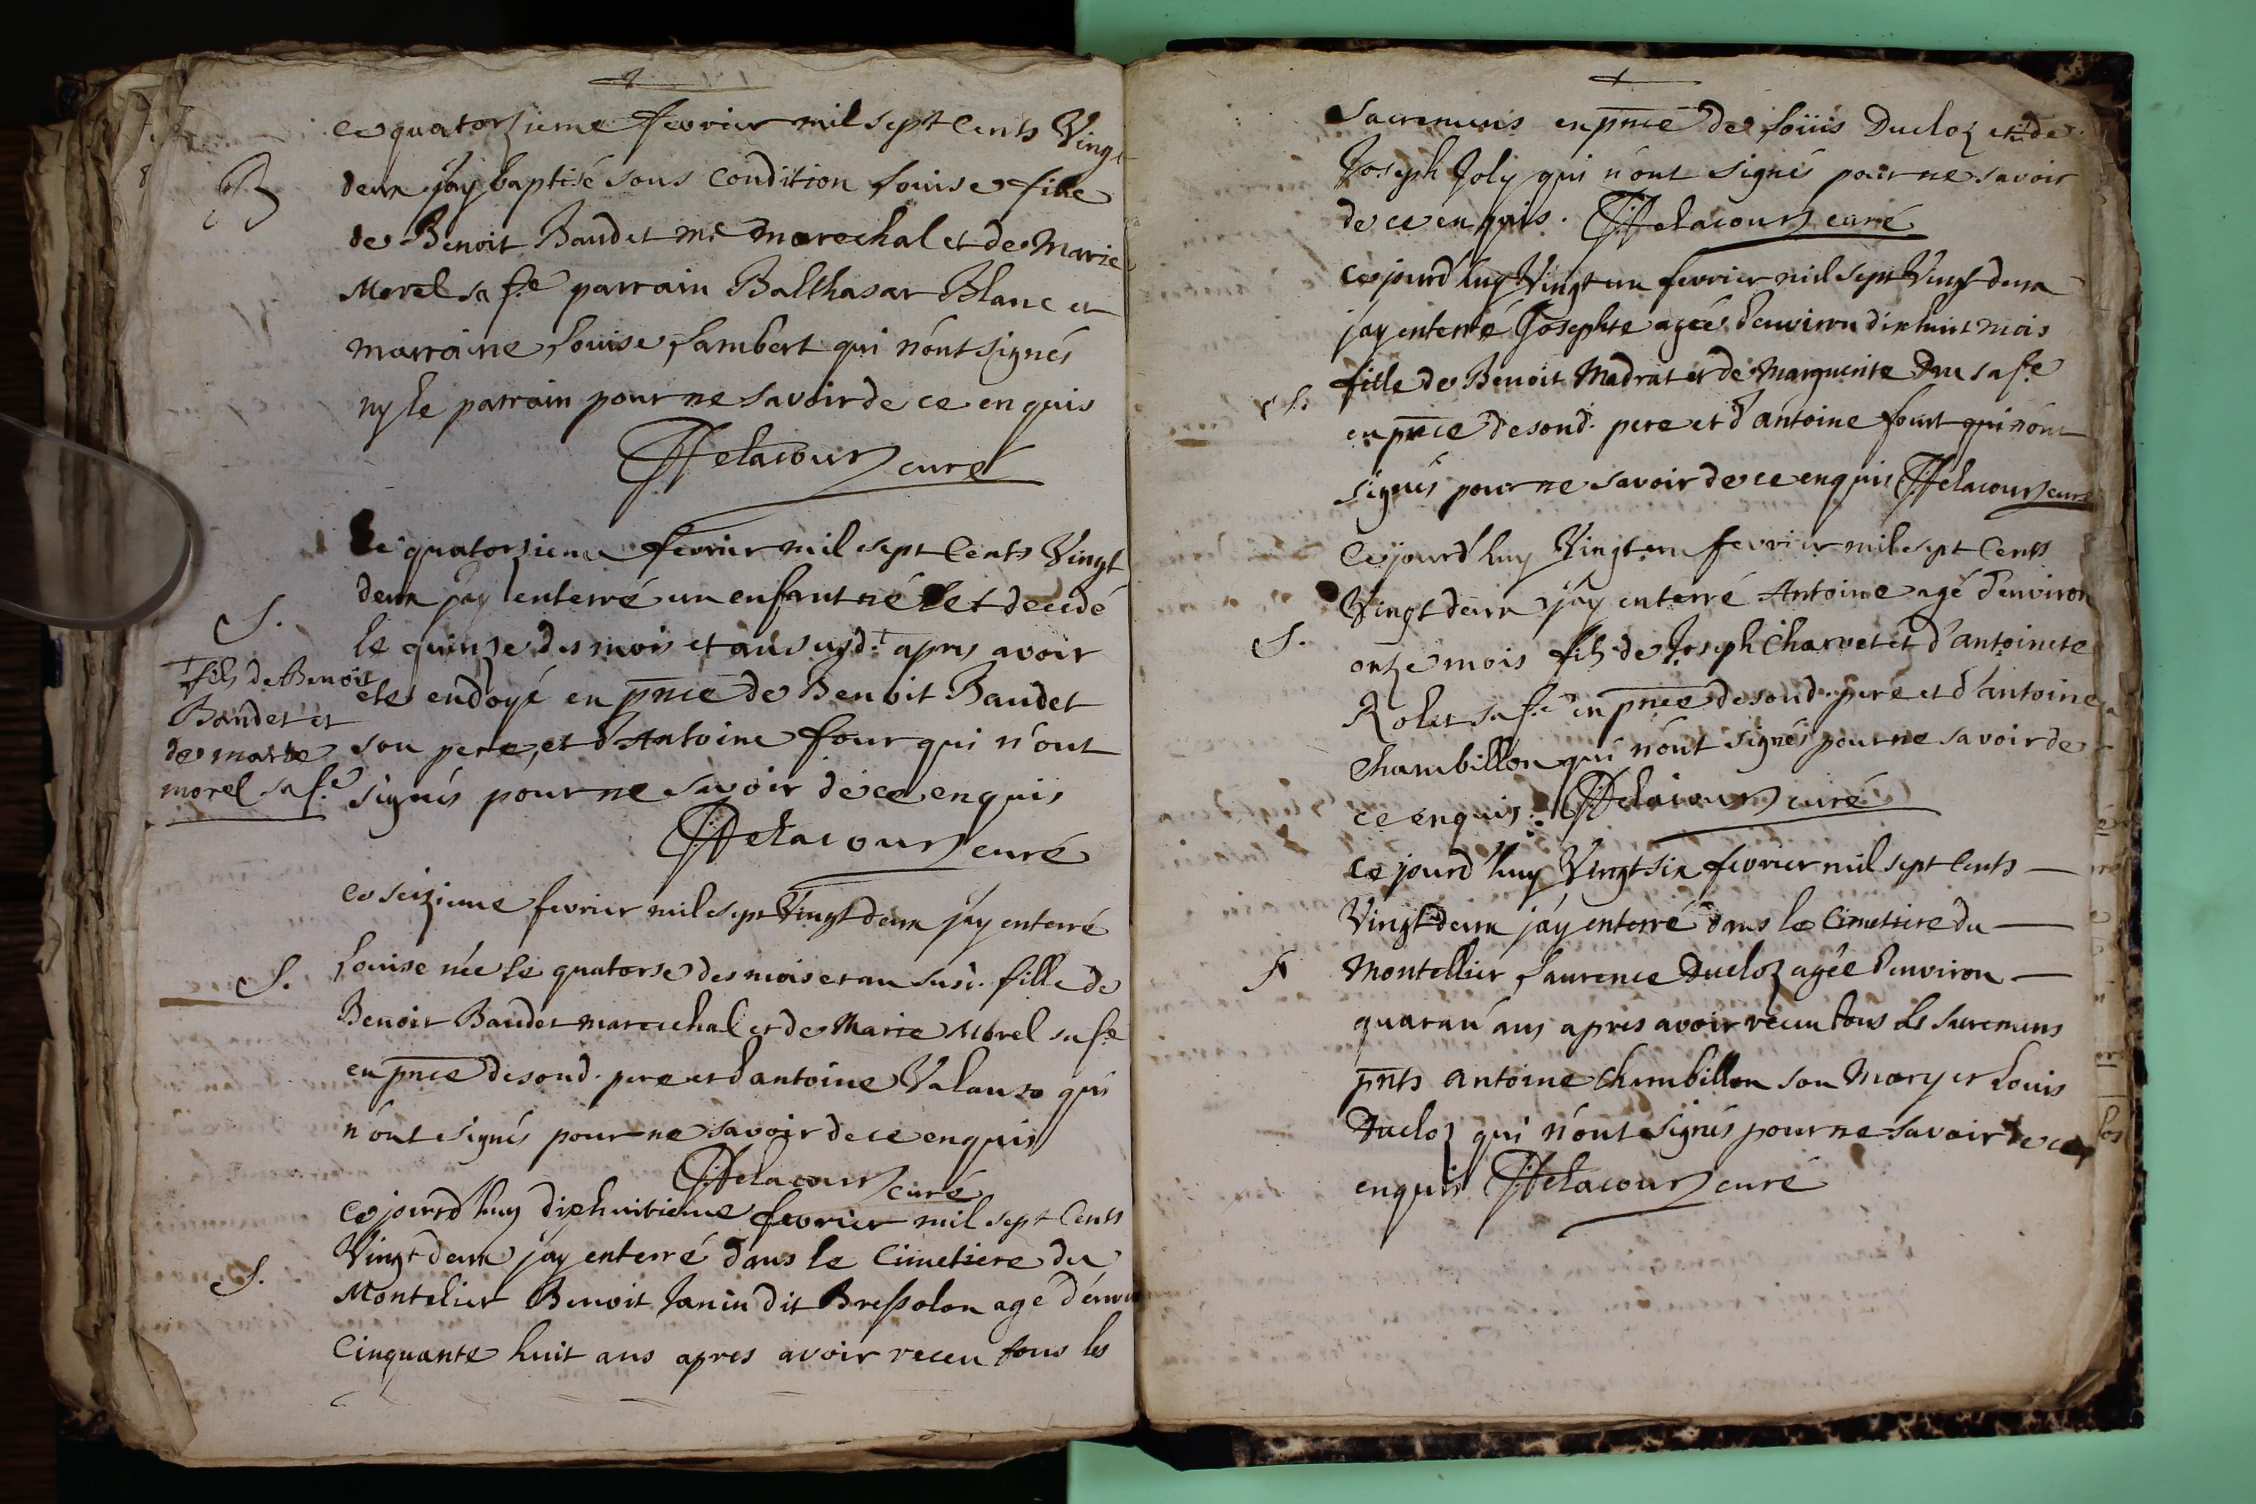 B
ce quatorzieme fevrier mil sept cents Vingt
deux j'ay baptisé sous condition Louise fille
de Benoit Baudet me marechal et de Marie
Morel sa fe parrain Balthasar Blanc et
marraine Louise Lambert qui n'ont signés
ny le parrain pour ne savoir de ce enquis
Delacour curé
S.
fils de Benoit
Baudet et
de marie
morel sa fe
Le quatorzieme fevrier mil sept Cents Vingt
deux j'ay enterré un enfant né et decedé
le quinze des mois et an susd. apres avoir
eté endoyé en pnce de Benoit Baudet
son pere, et d'Antoine four qui n'ont
signés pour ne savoir de ce enquis
Delacour curé
S.
ce seizieme fevrier mil sept Vingt deux j'ay enterré
Louise née le quatorse des mois et an susd. fille de
Benoit Baudet marechal et de Marie Morel sa fe
en pnce de sond. pere et d'antoine qui
n'ont signés pour ne savoir de ce enquis
Delacour curé
S.
ce jourd'huy dixhuitieme fevrier mil sept Cents
Vingt deux j'ay enterré dans le Cimetiere du
Montelier Benoit Janin dit Bressolon agé d'environ
Cinquante huit ans apres avoir receu tous les
sacremens en pnce de Loüis Ducloz et de
Joseph Joly qui n'ont signés pour ne savoir
de ce enquis. Delacour curé
S.
ce jourd'huy Vingt un fevrier mil sept Vingt deux
j'ay enterré Josephte agée d'environ dixhuit mois
fille de Benoit Madrat et de Marguerite sa fe
en pnce de sond. pere et d'antoine qui n'ont
signés pour ne savoir de ce enquis Delacour curé
S.
Ce jourd'huy Vingt un fevrier mil sept Cents
Vingt deux j'ay enterré Antoine agé d'environ
onze mois fils de Joseph Charvet et d'antoinete
Rolet sa fe en pnce de sond. pere et d'antoine
Chambillon qui n'ont signés pour ne savoir de
ce enquis. Delacour curé
S
ce jourd'huy Vingt six fevrier mil sept Cents
Vingt deux j'ay enterré dans le Cimetiere du
Montellier Laurence Ducloz agée d'environ
quaran ans apres avoir receu tous les sacremens
pnts antoine Chambillon son Mary et Louis
Ducloz qui n'ont signés pour ne savoir de ce
enquis Delacour curé